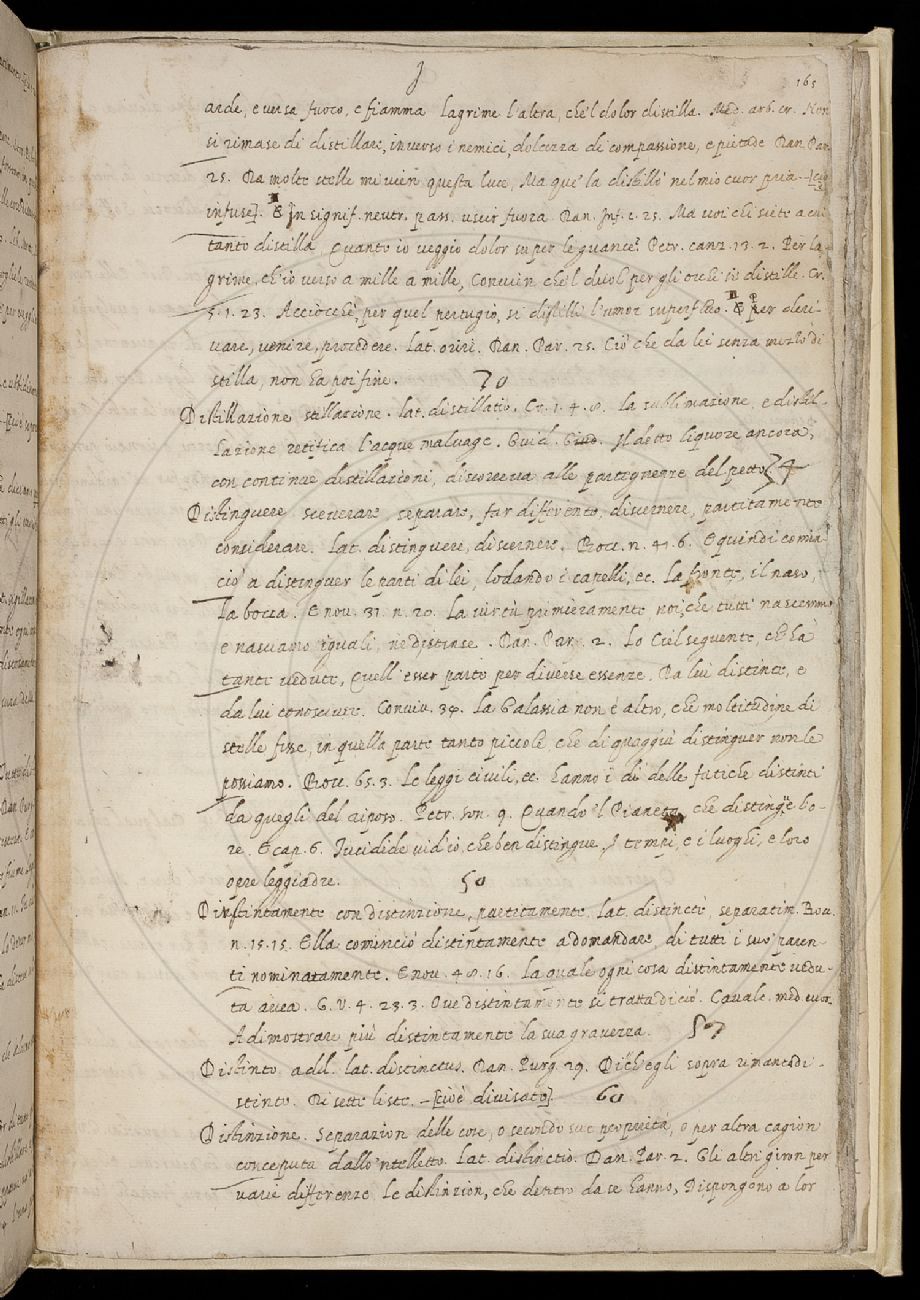 165
arde, e versa fuoco, e fiamma Lagrime l'altra, che 'l dolor distilla. Med. arb. cr. Non
si rimase di distillare, inverso i nemici, dolcezza di compassione, e pietade Dan. Par.
25. Da molte stelle mi vien questa luce, Ma que' la distillò nel mio cuor pria -[cioè
infuse]. E In signif. neutr. pass. uscir fuora Dan. Inf. c. 25. Ma voi chi siete a cui
tanto distilla Quanto io veggio dolor su per le guance? Petr. canz. 13. 2. Per la-
grime, ch'io verso a mille a mille, Convien che 'l duol per gli occhi si distille. Cr.
5. 1. 23. Acciocchè, per quel pertugio, si distilli l'umor superfluo. E per deri-
vare, venire, procedere. Lat. oriri. Dan. Par. 25. Ciò che da lei senza mezzo di
stilla, non ha poi fine. 70
Distillazione stillazione. lat. distillatio. Cr. 1. 4. 8. la sublimazione, e distil-
lazione retifica l'acque malvage. Guid. Giud. Il detto liquore ancora,
con continue distillazioni, discorreva alle parti gnegnere del petto 74
Distinguere scevrare separare, far differente, discernere, partitamente
considerare. Lat. distinguere, discernere. Bocc. n. 41. 6. E quindi comin-
ciò a distinguer le parti di lei, lodando i capelli, ec. la fronte, il naso,
la bocca. E nov. 31. n. 20. La virtù primieramente noi, che tutti nascemmo
e nasciamo iguali, ne distinse. Dan. Par. 2. Lo Ciel seguente, ch' ha
tante vedute, Quell' esser parte per diverse essenze. Da lui distinte, e
da lui conosciute. Conviv. 34. La Galassia non è altro, che moltitudine di
stelle fisse, in quella parte tanto piccole, che di quaggiù distinguer non le
possiamo. Bocc. 65. 3. Le leggi civili, ec. hanno i dì delle fatiche distinti
da quegli del riposo. Petr. son. 9. Quando 'l Pianeta, che distingue l'o-
re. E cap. 6. Tucidide vid' io, che ben distingue, I tempi, e i luoghi, e loro
opre leggiadre. 50
Distintamente con distinzione, partitamente. lat. distinctè, separatim. Bocc.
n. 15. 15. Ella cominciò distintamente a domandare, di tutti i suo' paren-
ti nominatamente. E nov. 48. 16. La quale ogni cosa distintamente vedu-
ta avea. G. V. 4. 23. 3. Ove distintamente si tratta di ciò. Cavalc. med. cuor.
A dimostrare più distintamente la sua gravezza. 57
Distinto add. lat. distinctus. Dan. Purg. 29. Di ch' egli sopra rimanea di-
stinto. Di sette liste. -[cioè divisato]. 60
Distinzione. Separazion delle cose, o secoldo sue propietà, o per altra cagion
conceputa dallo 'ntelletto. Lat. distinctio. Dan. Par. 2. Gli altri giron per
varie differenze Le distinzion, che dentro da se hanno, Dispongono a lor